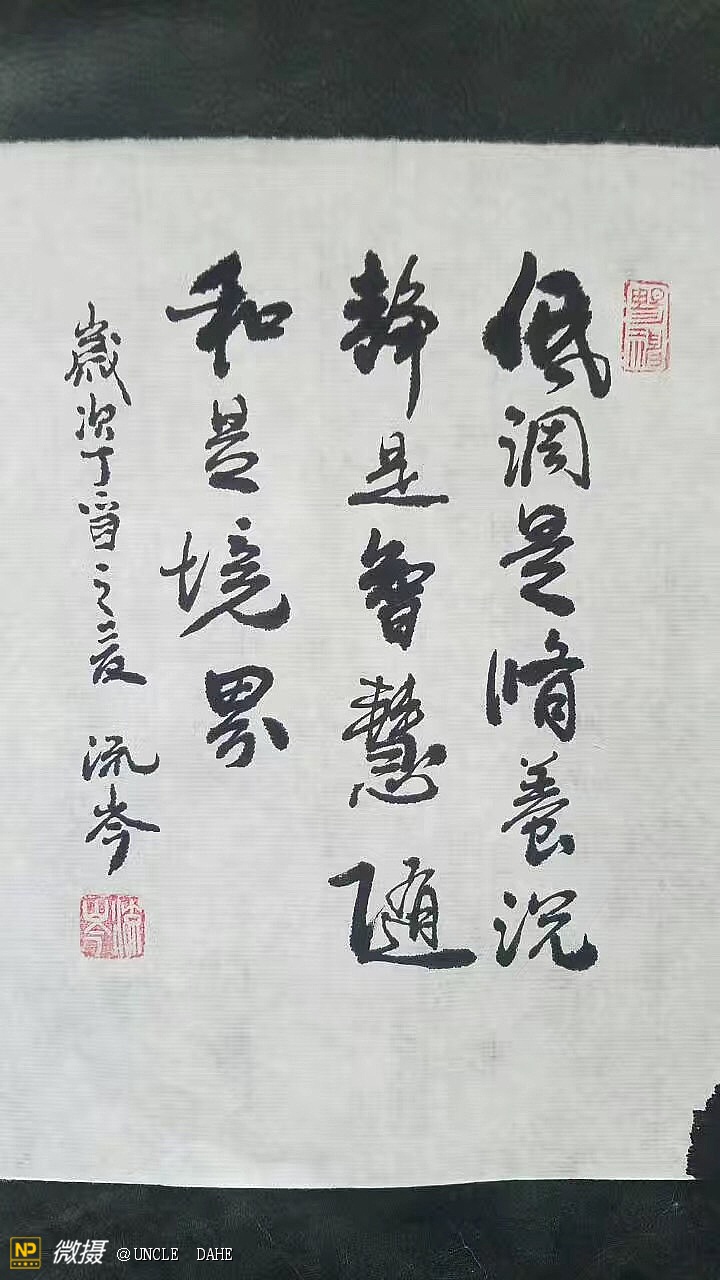 低调是脩養沉
静是智慧随
和是境界
歲次丁酉之夏 流岑
微摄 @UNCLE DAHE
NP